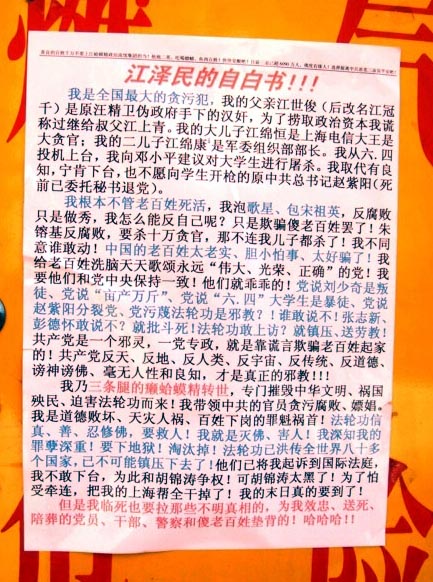 江泽民的自白书!!!
我是全国最大的贪污犯，我的父亲江世俊（后改名江冠
千）是原汪精卫伪政府手下的汉奸，为了捞取政治资本我谎
称过继给叔父江上青。我的大儿子江绵恒是上海电信大王是
大贪官；我的二儿子江绵康是军委组织部部长。我从六.四
投机上台，我向邓小平建议对大学生进行屠杀。我取代有良
知，宁肯下台，也不愿向学生开枪的原中共总书记赵紫阳（死
前已委托秘书退党）。
我根本不管老百姓死活，我泡歌星、包宋祖英，反腐败
只是做秀，我怎么能反自己呢？只是欺骗傻老百姓罢了！朱
镕基反腐败，要杀十万贪官，那不连我儿子都杀了！我不同
意谁敢动！中国的老百姓太老实、胆小怕事、太好骗了！我
给老百姓洗脑天天歌颂永远“伟大、光荣、正确”的党！我
要他们和党中央保持一致！他们就乖乖的！党说刘少奇是叛
徒、党说“亩产万斤”、党说“六.四”大学生是暴徒、党说
赵紫阳分裂党、党污蔑法轮功是邪教？！谁敢说不！张志新、
彭德怀敢说不？就批斗死！法轮功敢上访？就镇压、送劳教！
共产党是一个邪灵，一党专政，就是靠谎言欺骗老百姓起家
的！共产党反天、反地、反人类、反宇宙、反传统、反道德、
谤神谤佛、毫无人性和良知，才是真正的邪教！！！
我乃三条腿的癞蛤蟆精转世，专门摧毁中华文明、祸国
殃民、迫害法轮功而来！我带领中共的官员贪污腐败、嫖娼。
我是道德败坏、天灾人祸、百姓下岗的罪魁祸首！法轮功信
真、善、忍修佛，要救人！我就是灭佛、害人！我深知我的
罪孽深重！要下地狱！淘汰掉！法轮功已洪传全世界八十多
个国家，已不可能镇压下去了！他们已将我起诉到国际法庭，
我不敢下台，为此和胡锦涛争权！可胡锦涛太黑了！为了怕
受牵连，把我的上海帮全干掉了！我的末日真的要到了！
但是我临死也要拉那些不明真相的，为我效忠、送死、
陪葬的党员、干部、警察和傻老百姓垫背的！哈哈哈！！